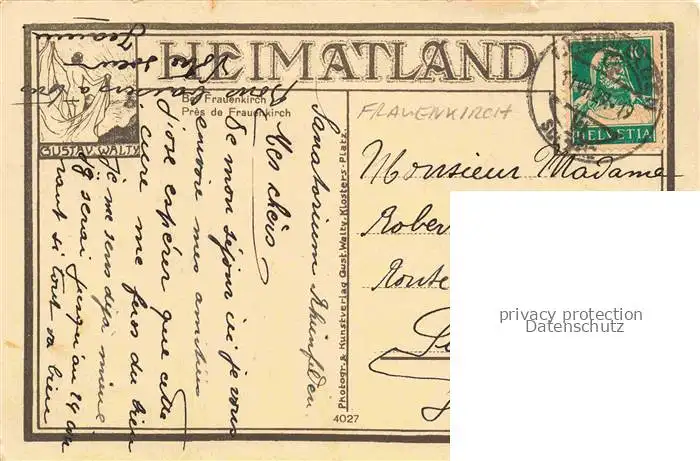 HEIMATLAND
GUSTAV WALTY
Bei Frauenkirch
Près de Frauenkirch
FRAUENKIRCH
HELVETIA
Sanatorium Rheinfelden
Mes chers
De mon séjour ici je vous
envoie mes amitiés
J'ose espérer que cette
cure me fera du bien
Je me sens déjà mieux
Je serai jusqu'au 24 
rant si tout va bien
Bons baisers à tous
Votre soeur
Jeanne
Photogr. & Kunstverlag Gust. Walty, Klosters-Platz.
4027
Monsieur Madame
Rober
Route
privacy protection
Datenschutz